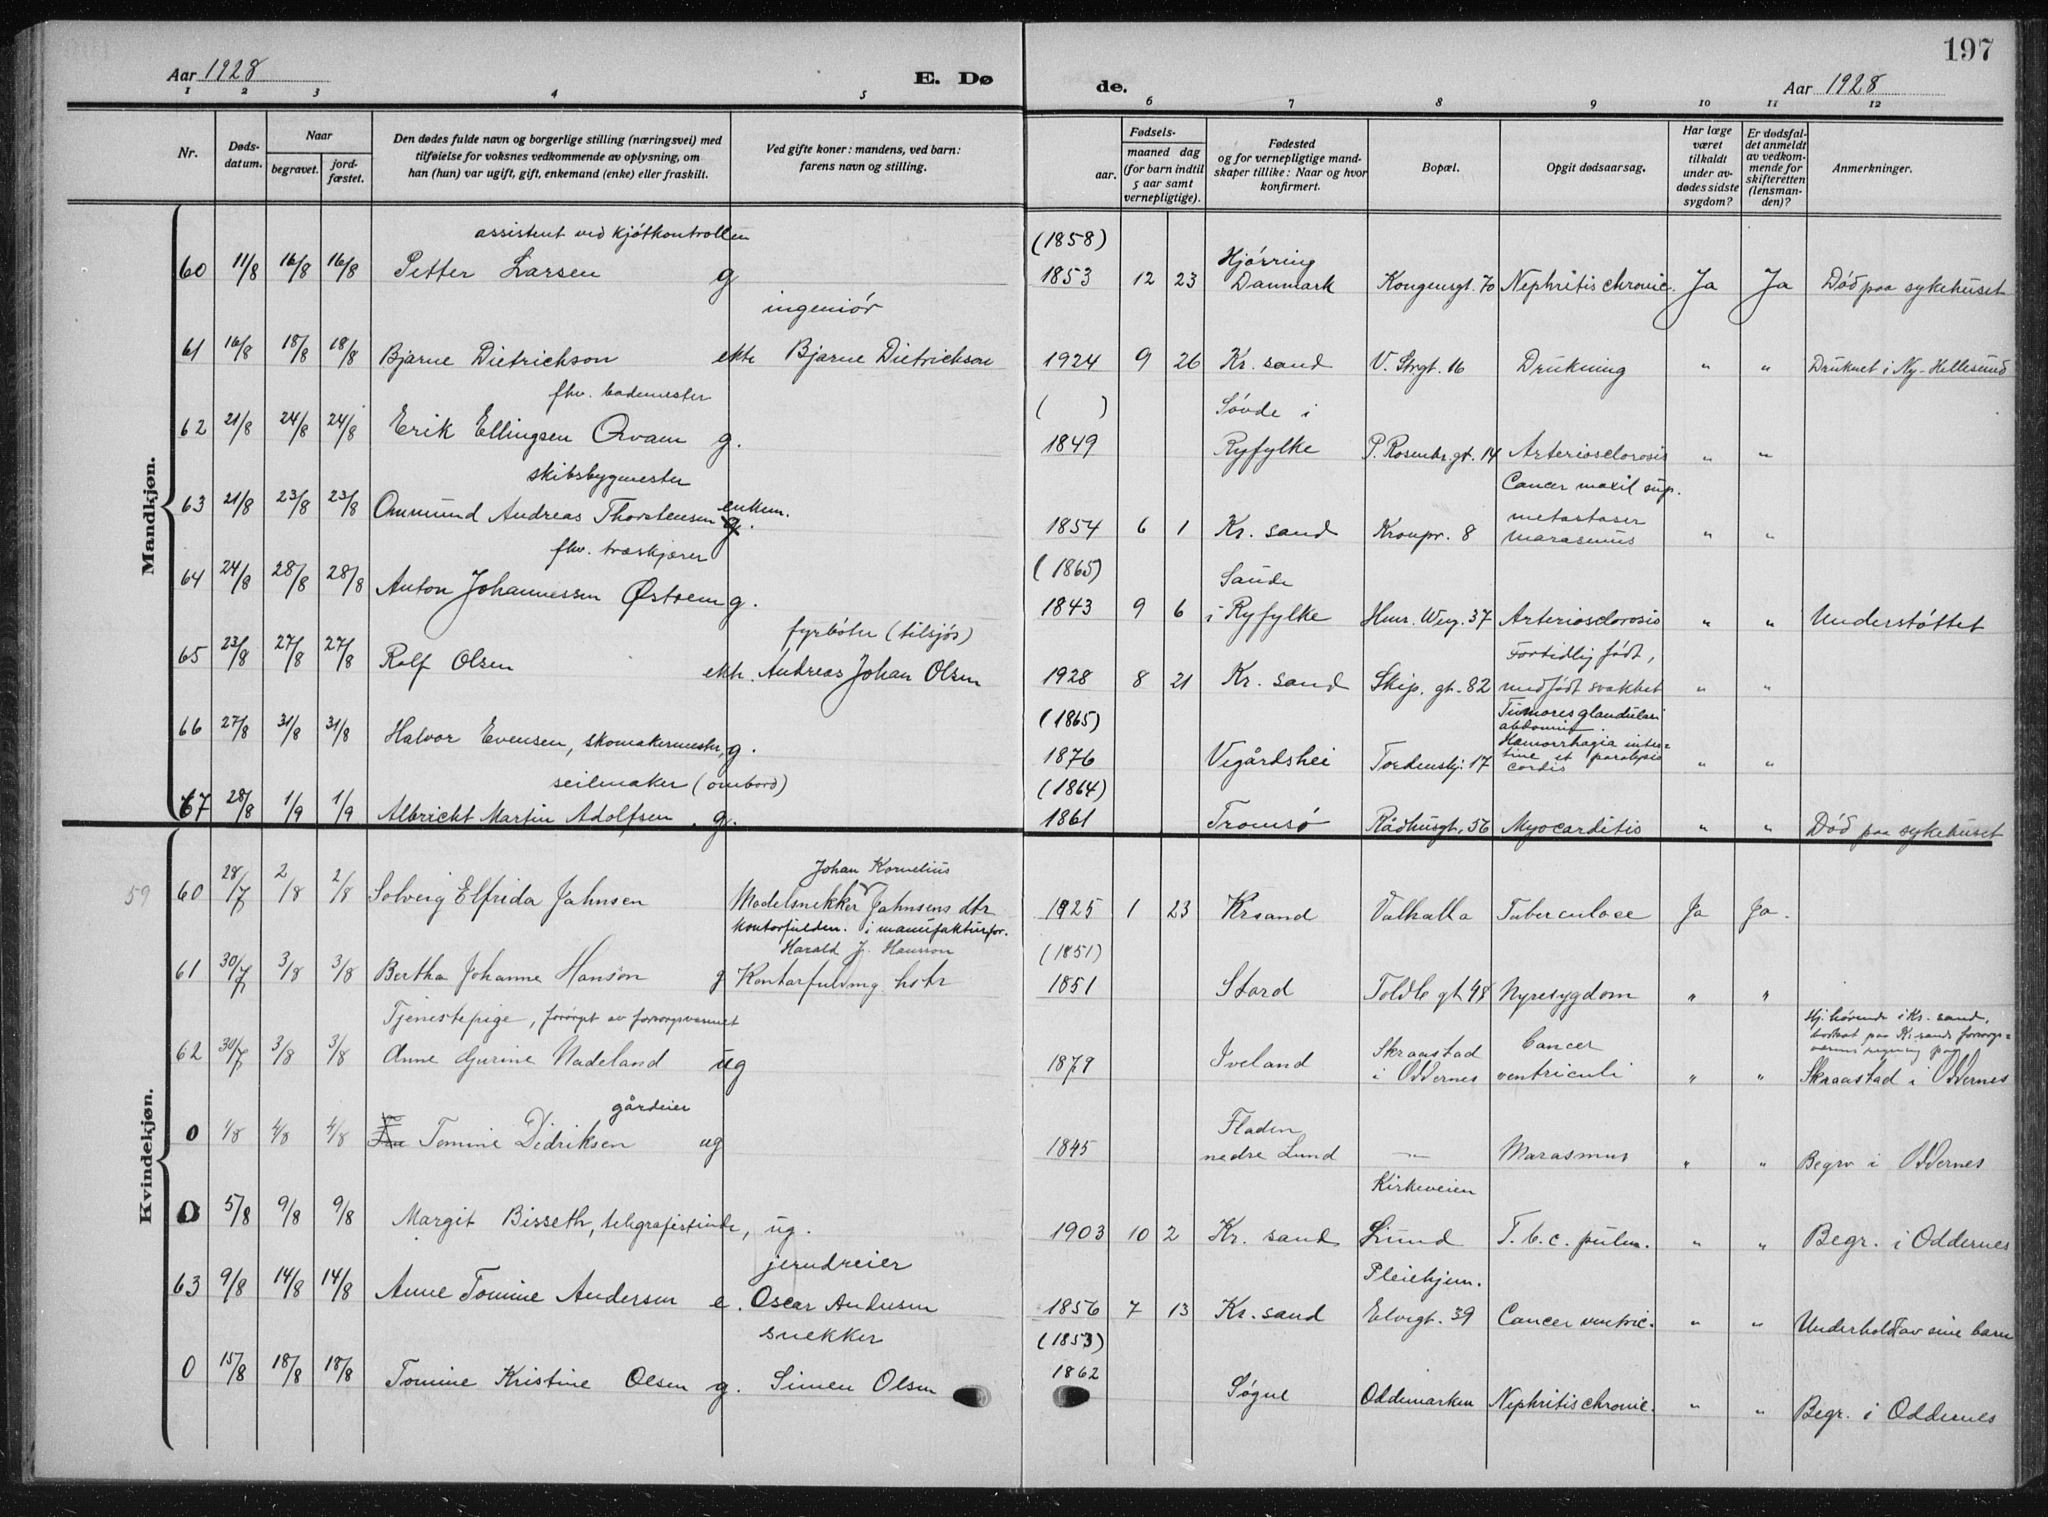 197
Aar 1928 E. Dø de. Aar 1928
1 2 3 4 5 6 7 8 9 10 11 12
Nr.
Døds-
datum.
Naar
begravet.
jord-
fæstet.
Den dødes fulde navn og borgerlige stilling (næringsvei) med
tilføielse for voksnes vedkommende av oplysning, om
han (hun) var ugift, gift, enkemand (enke) eller fraskilt.
Ved gifte koner: mandens, ved barn:
farens navn og stilling.
Fødsels-
aar.
maaned dag
(for barn indtil
5 aar samt
vernepligtige).
Fødested
og for vernepligtige mand-
skaper tillike: Naar og hvor
konfirmert.
Bopæl.
Opgit dødsaarsag.
Har læge
været
tilkaldt
under av-
dødes sidste
sygdom?
Er dødsfal-
det anmeldt
av vedkom-
mende for
skifteretten
(lensman-
den)?
Anmerkninger.
Mandkjøn.
assistent ved kjøtkontrollen (1858) Hjørring
60 11/8 16/8 16/8 Petter Larsen g 1853 12 23 Danmark Kongensgt. 70 Nephritis chronic. Ja Ja Død paa sykehuset
ingeniør
61 16/8 18/8 18/8 Bjarne Dietrichson ekte Bjarne Dietrichson 1924 9 26 Kr. sand V. Strgt. 16 Drukning " " Druknet i Ny-Hellesund
fhv. bademester ( ) Søvde i
62 21/8 24/8 24/8 Erik Ellingsen Orvam g. 1849 Ryfylke P. Rosenkr. gt. 14 Arteriosclorosis " "
skibsbygmester enkem. Cancer maxil sup.
63 21/8 23/8 23/8 Ommund Andreas Thorstensen g. 1854 6 1 Kr. sand Kronpr. 8 metastaser marasmus " "
fhv. træskjærer (1865) Saude
64 24/8 28/8 28/8 Anton Johannessen Østrem g. 1843 9 6 i Ryfylke Henr. Werg. 37 Arteriosclorosis " " Understøttet
fyrbøter (tilsjøs) Fortidlig født,
65 23/8 27/8 27/8 Rolf Olsen ekte. Andreas Johan Olsen 1928 8 21 Kr. sand Skip. gt. 82 medfødt svakhet " "
(1865) Tumores glandulari
abdomin.
66 27/8 31/8 31/8 Halvor Evensen, skomakermester, g. 1876 Vegårdshei Tordenskj. 17 Hæmorrhagia intes-
tine et paralysis
cordis " "
seilmaker (ombord) (1864)
67 28/8 1/9 1/9 Albricht Martin Adolfsen g. 1861 Tromsø Rådhusgt. 56 Myocarditis " " Død paa sykehuset
Kvindekjøn.
Johan Kornelius
59 60 28/7 2/8 2/8 Solveig Elfrida Jahnsen Modelsnekker Jahnsens dtr 1925 1 23 Krsand Valhalla Tuberculose Ja Ja.
kontorfuldm. i manufakturfor.
Harald J. Hansson (1851)
61 30/7 3/8 3/8 Bertha Johanne Hanson g Kontorfuldmg hstr 1851 Stord Toldb gt 48 Nyresygdom " "
Tjenestepige, forsørgt av forsorgsvæsenet Skraastad Cancer Hj. hørende i Kr. sand,
bortsat paa Kr.sands forsorgs-
væsens regning paa
62 30/7 3/8 3/8 Anne Gurine Nadeland ug 1879 Iveland i Oddernes ventriculi " " Skraastad i Oddernes
gårdeier Fladen
0 4/8 4/8 4/8 Tomine Didriksen ug 1845 nedre Lund — Marasmus " " Begrv i Oddernes
Kirkeveien
0 5/8 9/8 9/8 Margit Bisseth, telegrafistinde, ug. 1903 10 2 Kr. sand Lund T. b. c. pulm. " " Begr. i Oddernes
jerndreier Pleiehjem.
63 9/8 14/8 14/8 Anne Tomine Andersen e. Oscar Andersen 1856 7 13 Kr. sand Elvegt. 39 Cancer ventric. " " Underholdt av sine barn
snekker (1853)
0 15/8 18/8 18/8 Tomine Kristine Olsen g. Simen Olsen 1862 Søgne Oddemarken Nephritis chronic. " " Begr. i Oddernes